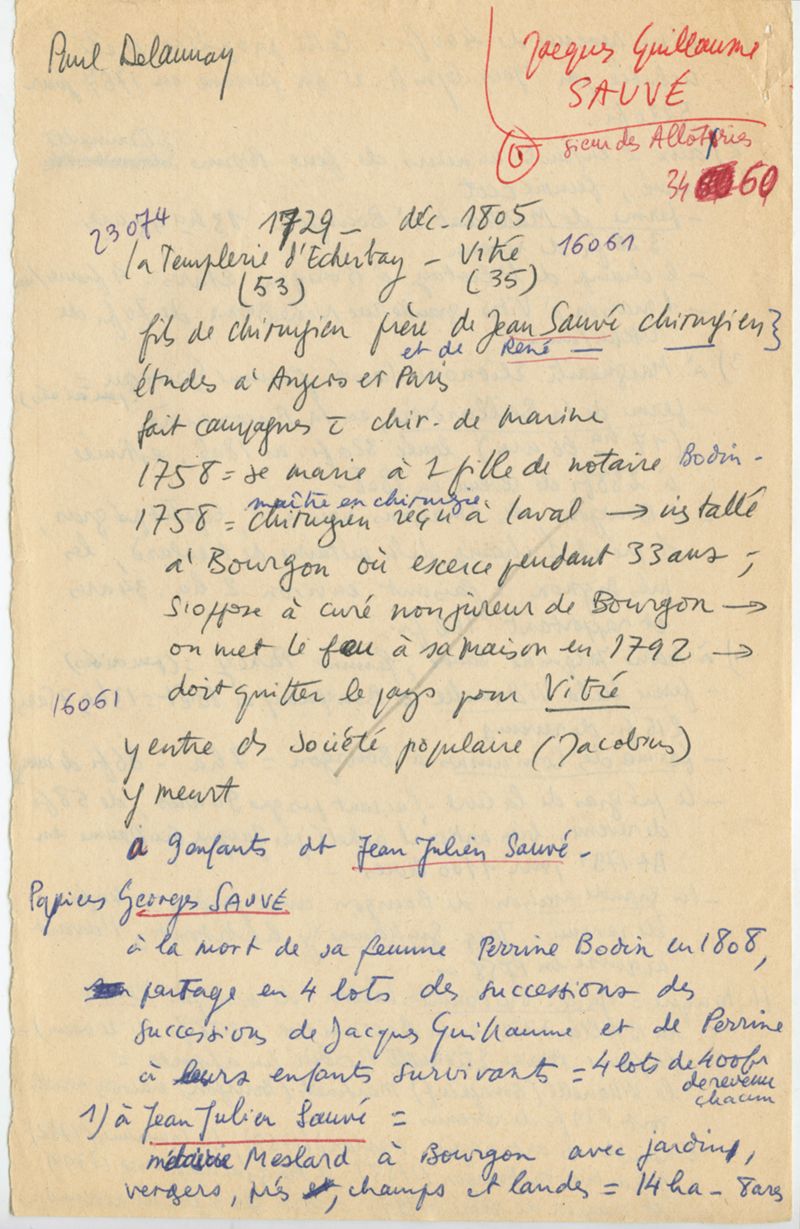 Paul Delaunay
Jacques Guillaume
SAUVÉ
sieur des Allotries
34 60
23074
1729 - déc. 1805
la Templerie d'Echerbay - Vitré 16061
(53) (35)
fils de chirurgien frère de Jean Sauvé chirurgien}
et de René
études à Angers et Paris
fait campagnes chir. de marine
1758 = se marie à 1 fille de notaire Bodin -
maître en chirurgie
1758 = chirurgien reçu à Laval → installé
à Bourgon où exerce pendant 33 ans ;
s'oppose à curé non jureur de Bourgon →
on met le feu à sa maison en 1792 →
16061
doit quitter le pays pour Vitré
y entre ds Société populaire (Jacobins)
y meurt
a 9 enfants dt Jean Julien Sauvé -
Papiers Georges SAUVÉ
à la mort de sa femme Perrine Bodin en 1808,
partage en 4 lots des successions des
successions de Jacques Guillaume et de Perrine
à leurs enfants survivants = 4 lots de 400 fr
de revenu
chacun
1) à Jean Julien Sauvé =
métairie Meslard à Bourgon avec jardins,
vergers, prés, champs et landes = 14 ha - 8 ares